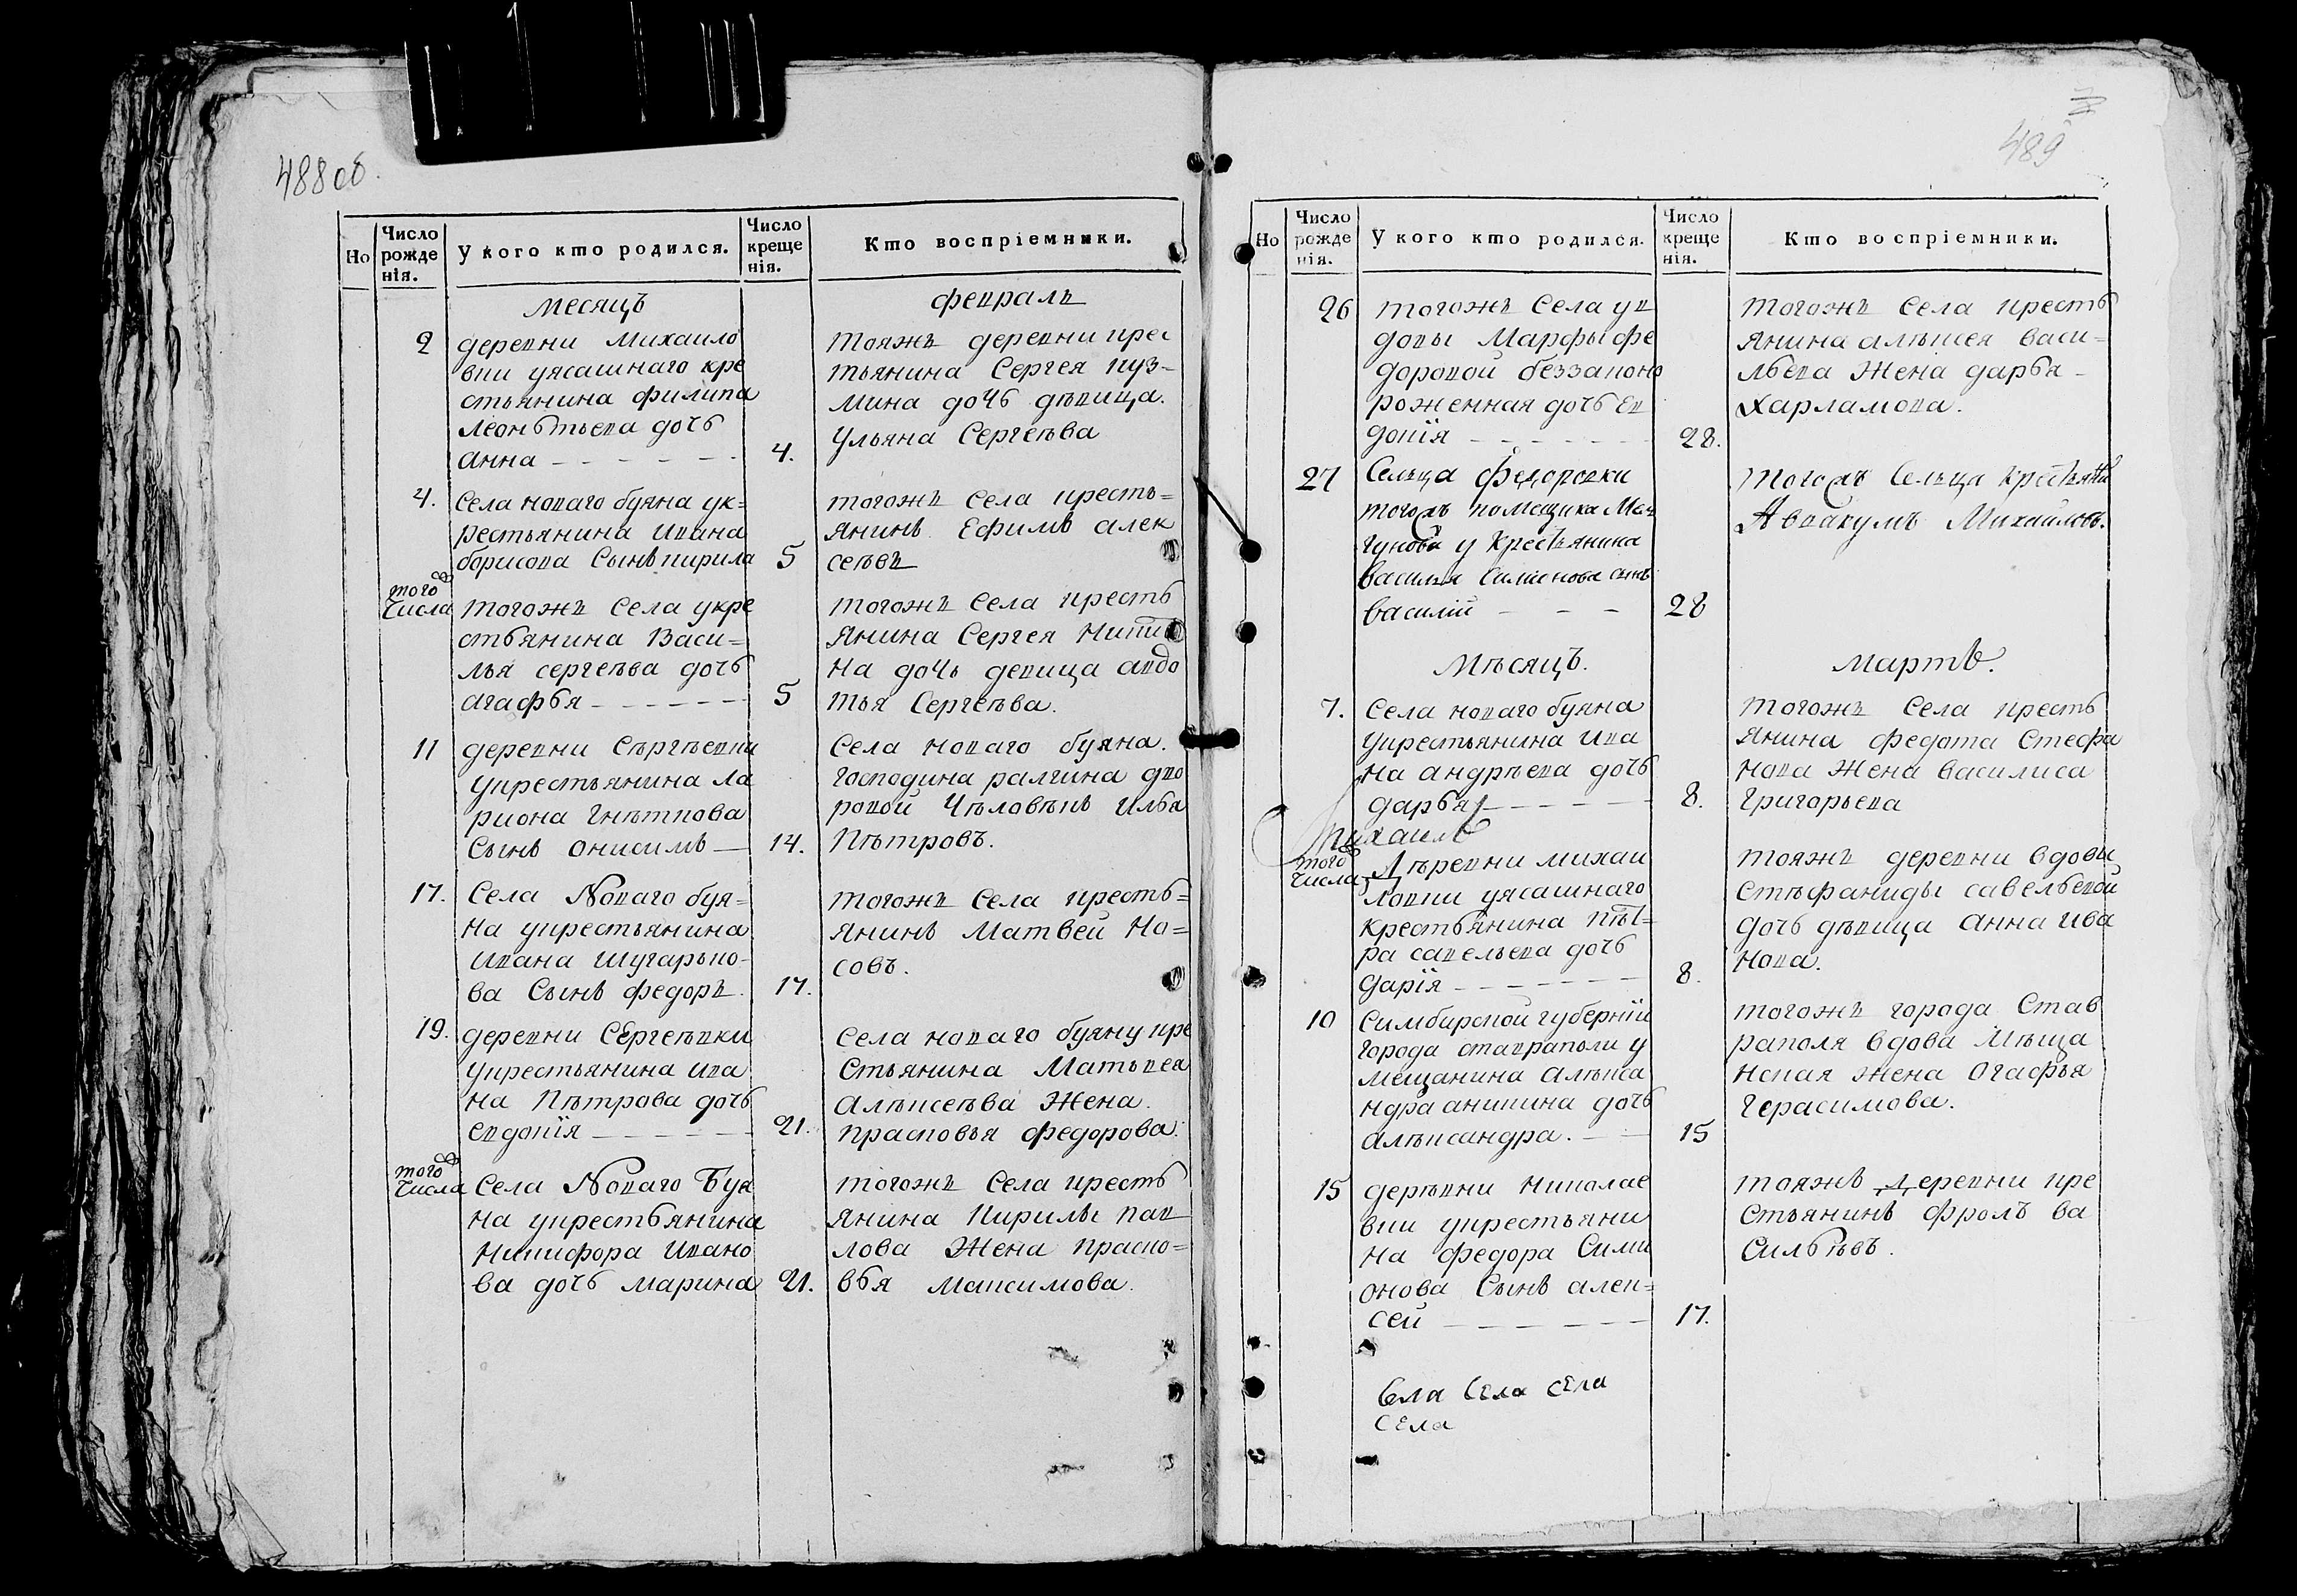 488 об.
Но
Число рожде нія.
У кого кто родился.
Число креще нія.
Кто воспріемники.
Месяцъ
февраль
2
деревни Михаило
вки уясашнаго кре
стьянина филипа
Леонътьева дочь
анна
4.
тояжъ деревни крес
тьянина Сергея куз-
мина дочь дѣвица.
Ульяна Сергеѣва
4.
Села новаго буяна ук=
рестьянина ивана
борисова Сынъ кирила
5
тогожъ села кресть=
янинъ Ефимъ алек
сеѣвъ
того
Числа
тогожъ Села укре
стьянина Васи=
лья сергеѣва дочь
агафья
5
тогожъ Села кресть
янина Сергея Никити
на дочь девица авдо
тья Сергеѣва.
11
деревни Сѣргѣевки
укрестьянина ла
риона Гнѣткова
Сынъ онисимъ
14.
Села новаго буяна.
господина ралгина дво
ровой Чѣловѣкъ илья
Пѣтровъ.
17.
Села Новаго буя=
на укрестьянина
ивана шугарько-
ва Сынъ федоръ.
17.
тогожъ Села кресть=
янинъ Матвей Но=
совъ.
19.
деревни Сергеѣвки
укрестьянина ива
на Пѣтрова дочь
евдокія
21.
Села новаго буяну кре
стьянина Матьвея
Алѣксеѣва Жена.
прасковья федорова.
того
Числа
Села Новаго Буя
на укрестьянина
Никифора Ивано
ва дочь марина
21.
тогожъ Села кресть
янина Кирилы пав
лова Жена праско=
вья максимова.
489
Но
Число рожде нія.
У кого кто родился.
Число креще нія.
Кто воспріемники.
26
тогожъ Села ув
довы Марфы фе
доровой беззаконо
роженная дочь ев
докія
28.
тогожъ Села кресть
янина алѣксея васи=
льева Жена дарья
харламова.
27
Сельца федоровки
тогожъ помещика Мач
гунова у крестьянина
василья Симионова сынъ
василий
28
тогожъ Сельца крестьянинъ
Аввакумъ Михайловъ.
Мѣсяцъ.
мартъ.
7.
Села новаго буяна
Укрестьянина ива
на андрѣева дочь
дарья
8.
тогожъ Села кресть
янина федота Стефа
нова Жена василиса
Григорьева
Михаилъ
того
Числа
Дѣревни михаи
ловки уясашнаго
крестьянина пѣт=
ра савельева дочь
дарія
8.
тояжъ деревни вдовы
Стѣфаниды савельевой
дочь дѣвица анна ива
нова.
10
Симбирской губерніи
города ставраполи у
мещанина алѣкса
ндра аникина дочь
алѣксандра.
15
тогожъ города Став
раполя вдова Мѣща
нская жена Огафья
Герасимова.
15
дерѣвни Николае
вки укрестьяни
на федора Сими
онова Сынъ алек=
сей
17.
тояжъ Деревни кре
стьянинъ Фролъ ва
сильѣвъ.
Села Села села
села